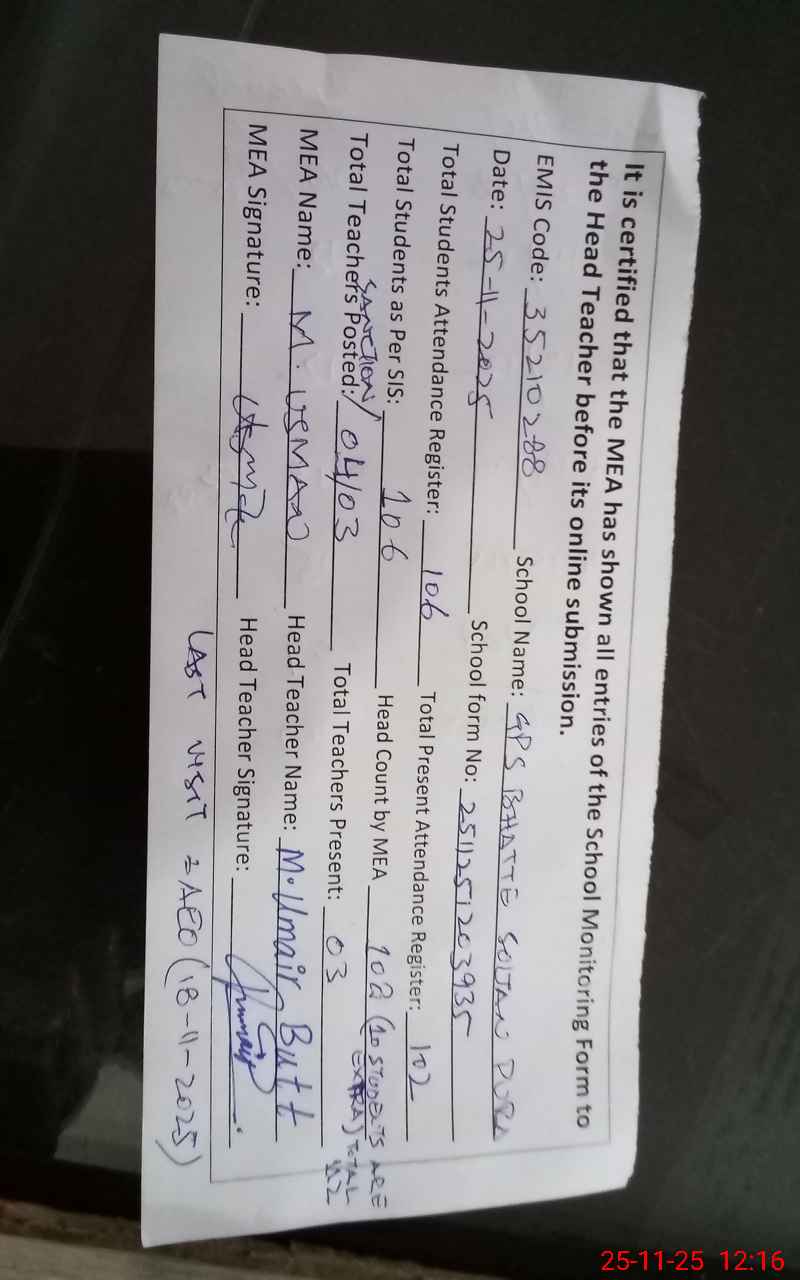 It is certified that the MEA has shown all entries of the School Monitoring Form to
the Head Teacher before its online submission.
EMIS Code: 35210288 School Name: GPS BHATTE SOLTAN PURA
Date: 25-11-2025 School form No: 2511251203935
Total Students Attendance Register: 106 Total Present Attendance Register: 102
Total Students as Per SIS: 106 Head Count by MEA 102 (10 STUDENTS ARE
EXTRA) TOTAL
112
SANCTION/
Total Teachers Posted: 04/03 Total Teachers Present: 03
MEA Name: M. USMAN Head Teacher Name: M. Umair Butt
MEA Signature: Head Teacher Signature:
LAST VISIT = AEO (18-11-2025)
25-11-25 12:16